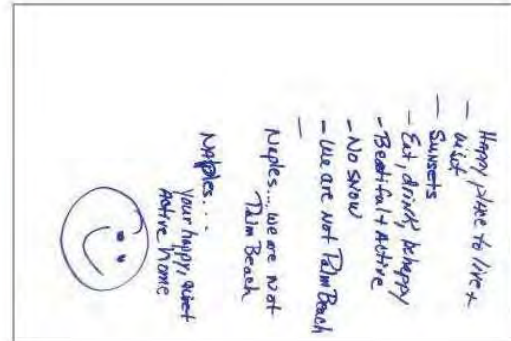 Happy place to live +
- visit
- Sunsets
- Eat, drink, be happy
- Beatiful + Active
- No snow
- We are Not Palm Beach
-
Naples... we are not
Palm Beach
Naples...
your happy, quiet
Active home